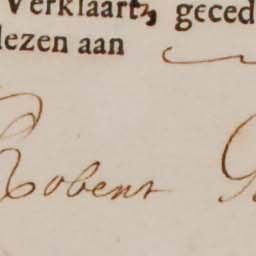 Verklaart, geced
lezen aan
Robert